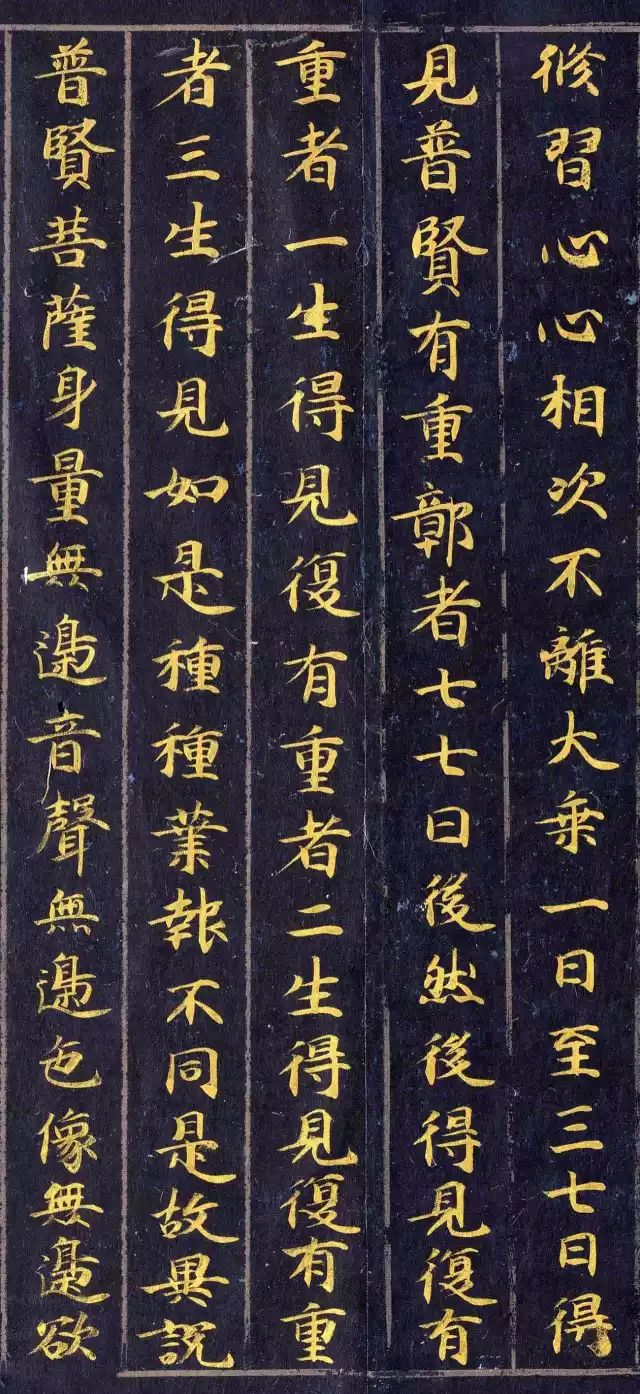 修習心心相次不離大乗一日至三七日得
見普賢有重鄣者七七日後然後得見復有
重者一生得見復有重者二生得見復有重
者三生得見如是種種業報不同是故異説
普賢菩薩身量無邊音聲無邊色像無邊欲